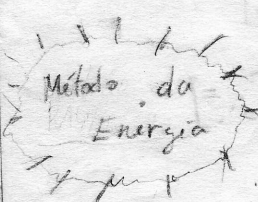 Método da
Energia